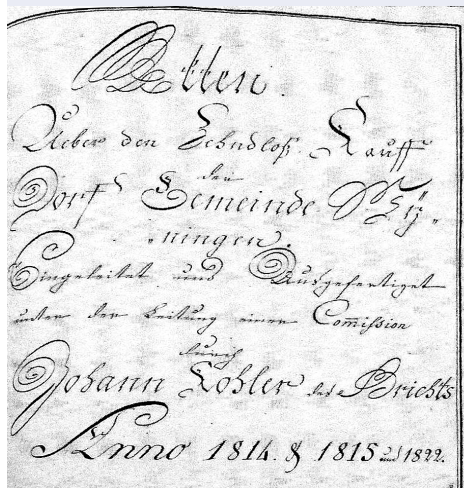 Akten
Ueber den Zehndlosz Kauff
der
Dorf Gemeinde
ningen.
Eingeleitet und Ausgefertiget
unter der Leitung einer Commission
durch
Johann Kohler des Grichts
Anno 1814. & 1815 und 1822.